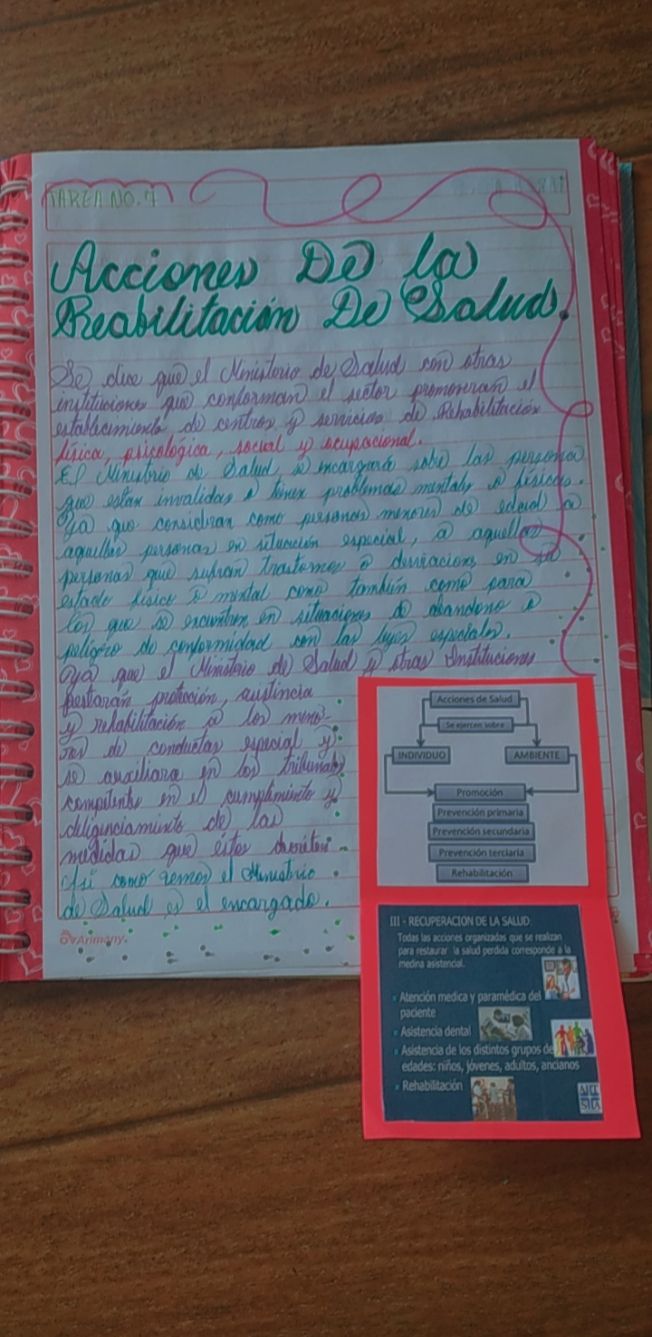 TAREA NO. 7
Acciones De la
Reabilitación De Salud.
Se dice que el Ministerio de Salud con otras
instituciones que conforman el sector promoveran el
establecimiento de centros y servicios de Rehabilitación
física, psicológica, social y ocupacional.
El Ministrio de Salud, se encargará sobe las persona
que estan invalidas o tienen problemas mentales o físicos.
Ya que consideran como personas menores de edad a
aquellas personas en situación especial, a aquellas
personas que sufran trastornos o desviaciones en su
estado físico o mental como también como para
los que se encuentren en situaciones de abandono o
peligro de conformidad con las leyes especiales.
Ya que el Ministerio de Salud y otras Instituciones
prestarán protección, asistincia
y rehabilitación a los meno-
res de conductas especial y
se auxiliara en los tribunales
competente en el cumplimiento y
diligenciamiento de las
medidas que estos decreten.
Así como vemos el Ministrio
de Salud es el encargado.
Arimany
Acciones de Salud
Se ejercen sobre
INDIVIDUO AMBIENTE
Promoción
Prevención primaria
Prevención secundaria
Prevención terciaria
Rehabilitación
III - RECUPERACION DE LA SALUD:
Todas las acciones organizadas que se realizan
para restaurar la salud perdida corresponde a la
medina asistencial.
Atención medica y paramédica del
paciente
Asistencia dental
Asistencia de los distintos grupos de
edades: niños, jóvenes, adultos, ancianos
Rehabilitación